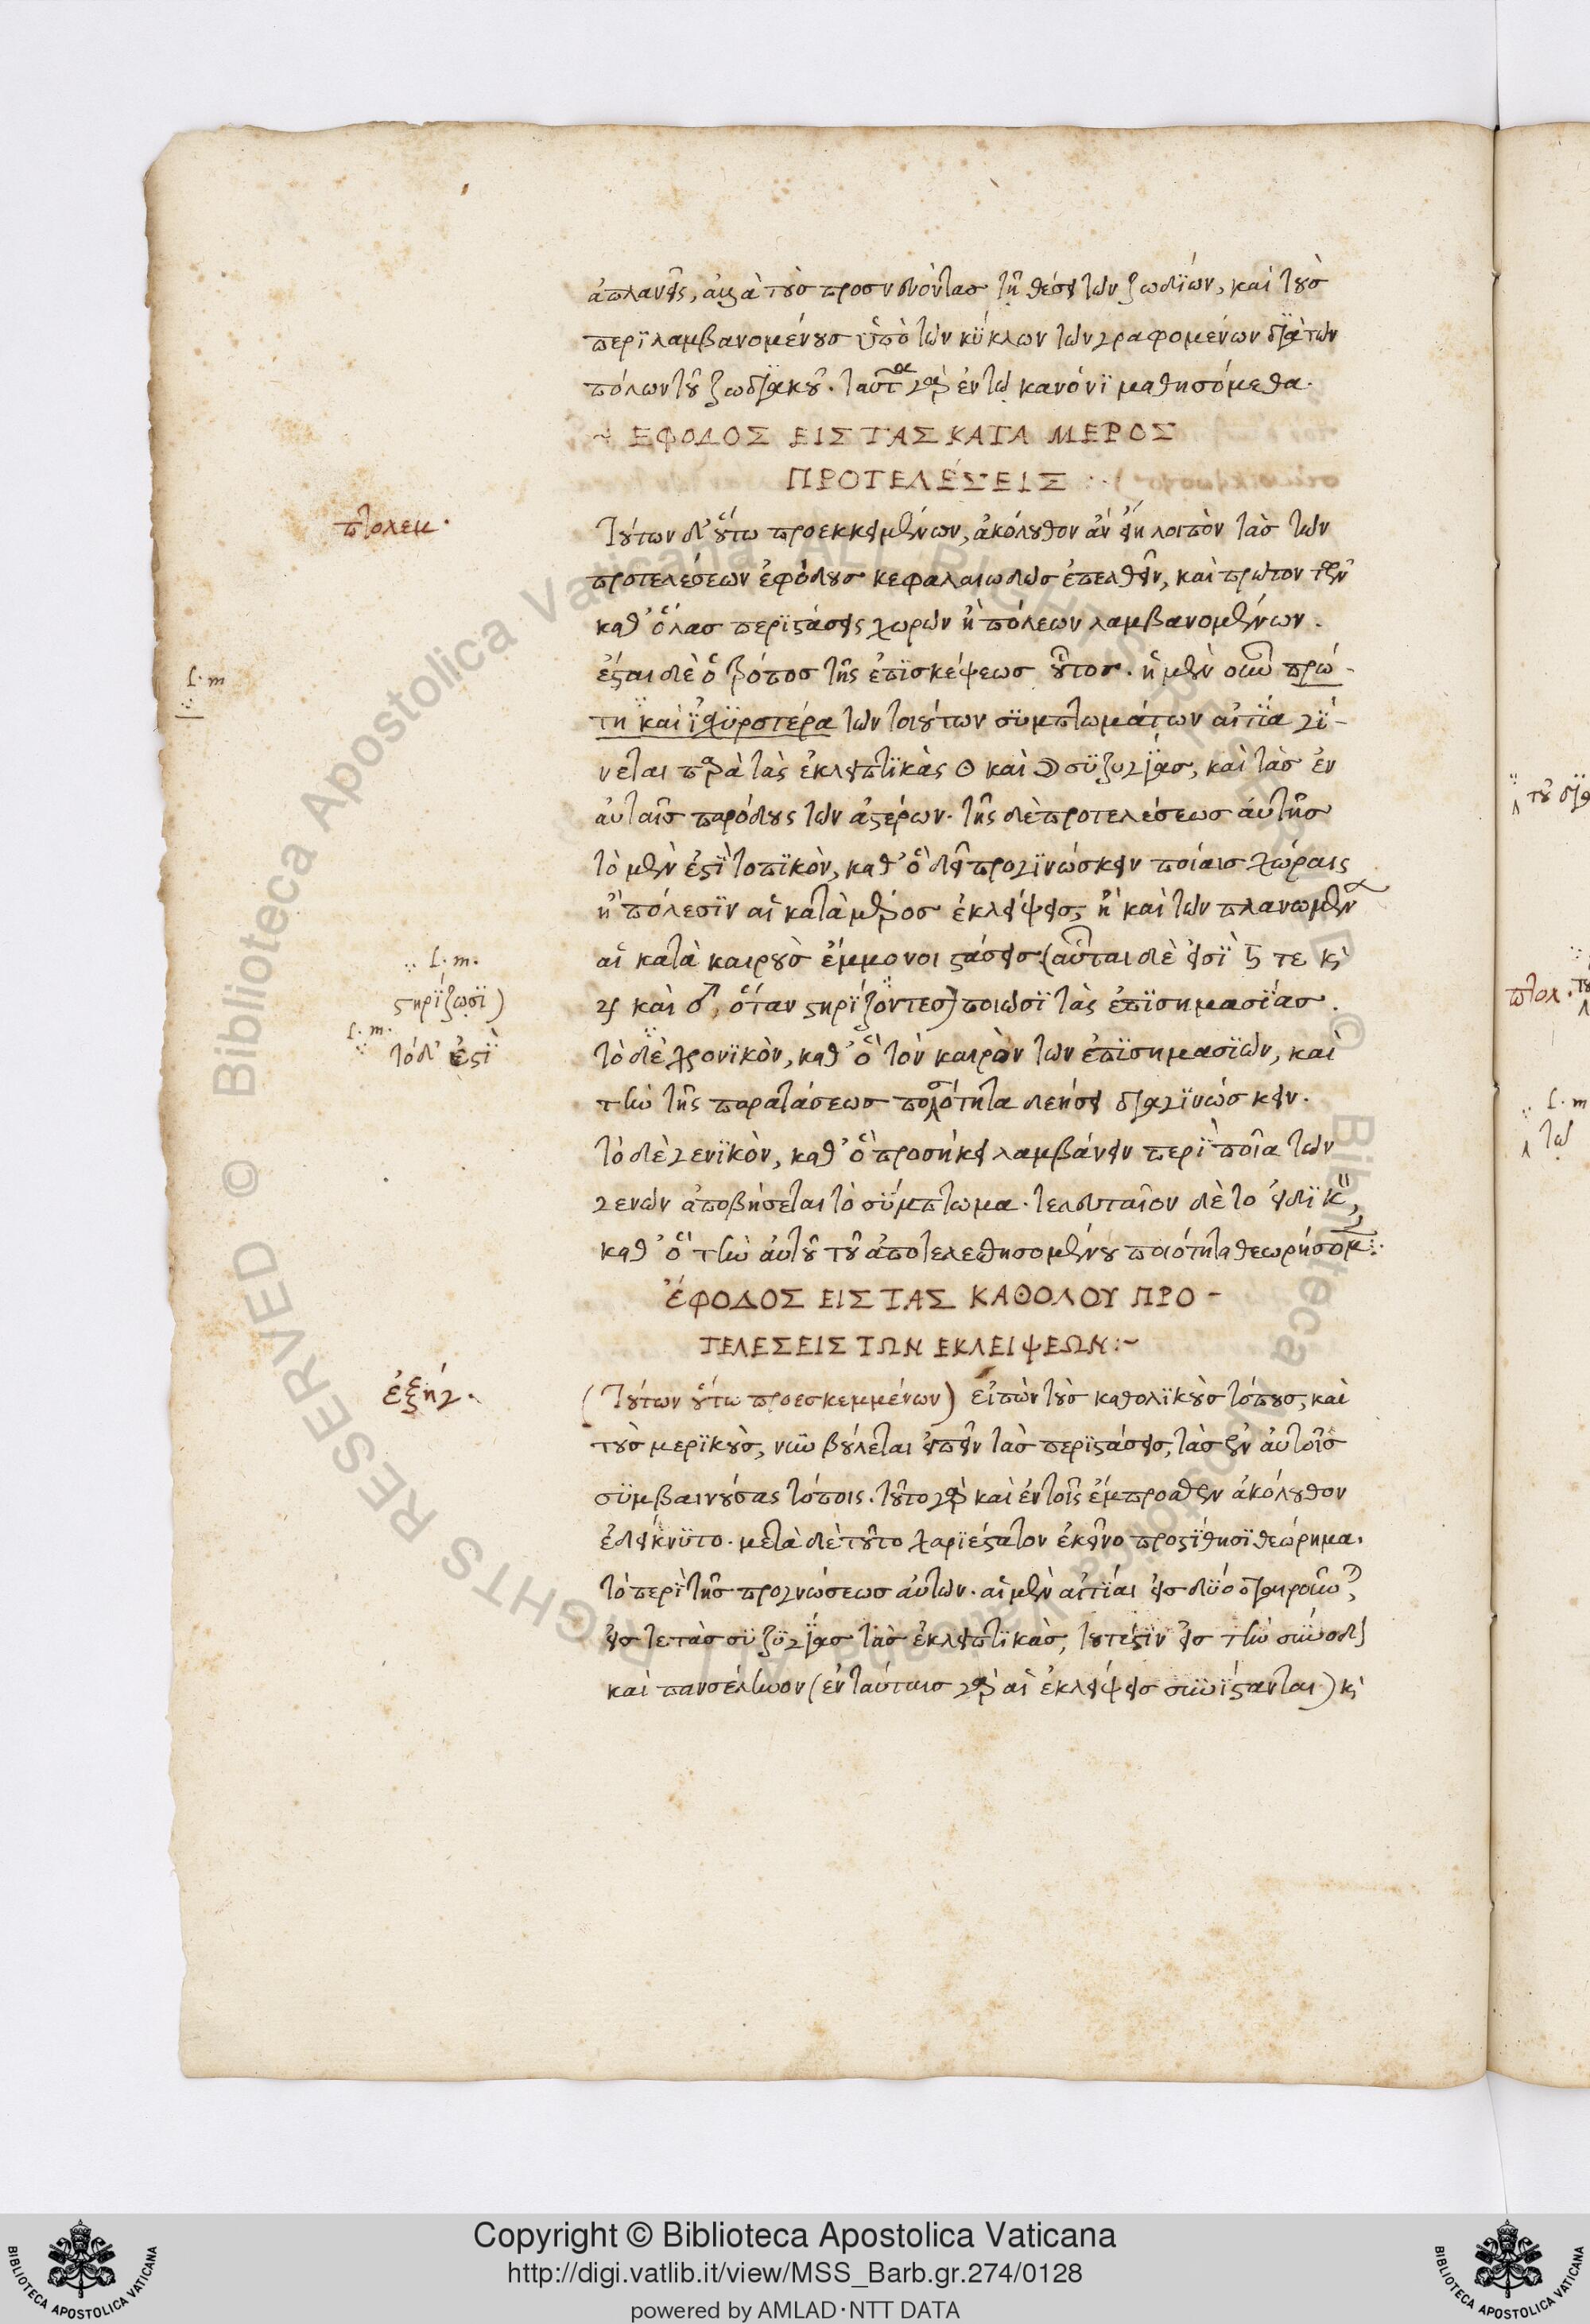 ἀπλανεῖς, ἀλλὰ τοὺς προσνεύοντας τῇ θέσει τῶν ζωδίων, καὶ τοὺς
περιλαμβανομένους ὑπὸ τῶν κύκλων τῶν γραφομένων διὰ τῶν
πόλων τοῦ ζωδιακοῦ. ταῦτα γὰρ ἐν τῷ κανόνι μαθησόμεθα.
ΕΦΟΔΟΣ ΕΙΣ ΤΑΣ ΚΑΤΑ ΜΕΡΟΣ
ΠΡΟΤΕΛΕΣΕΙΣ :·
πτολεμ.
Τούτων δ' οὕτω προεκκειμένων, ἀκόλουθον ἂν εἴη λοιπὸν τὰς τῶν
προτελέσεων ἐφόδους κεφαλαιωδῶς ἐπελθεῖν, καὶ πρῶτον τῶν
καθ' ὅλας περιστάσεις χωρῶν ἢ πόλεων λαμβανομένων.
ἔσται δὲ ὁ τρόπος τῆς ἐπισκέψεως οὗτος. ἡ μὲν οὖν πρώ-
l. m
τη καὶ ἰσχυροτέρα τῶν τοιούτων συμπτωμάτων αἰτία γί-
νεται παρὰ τὰς ἐκλειπτικὰς ☉ καὶ ☽ συζυγίας, καὶ τὰς ἐν
αὐταῖς παρόδους τῶν ἀστέρων. τῆς δὲ προτελέσεως αὐτῆς
τὸ μὲν ἐστὶ τοπικὸν, καθ' ὃ δεῖ προγινώσκειν ποίαις χώραις
ἢ πόλεσιν αἱ κατὰ μέρος ἐκλείψεις, ἢ καὶ τῶν πλανωμένων
αἱ κατὰ καιροὺς ἔμμονοι στάσεις (αὗται δὲ εἰσὶ ♄ τε κὶ
l. m.
στηρίζωσι)
♃ καὶ ♂, ὅταν στηρίζοντες) ποιῶσι τὰς ἐπισημασίας.
l. m.
τὸ δ' ἐστὶ
τὸ δὲ χρονικὸν, καθ' ὃ τὸν καιρὸν τῶν ἐπισημασιῶν, καὶ
τὴν τῆς παρατάσεως ποσότητα δεήσει διαγινώσκειν.
τὸ δὲ γενικὸν, καθ' ὃ προσήκει λαμβάνειν περὶ ποῖα τῶν
γενῶν ἀποβήσεται τὸ σύμπτωμα. τελευταῖον δὲ τὸ εἰδικ,
καθ' ὃ τὴν αὐτοῦ τοῦ ἀποτελεσθησομένου ποιότητα θεωρήσομ:·
ἘΦΟΔΟΣ ΕΙΣ ΤΑΣ ΚΑΘΟΛΟΥ ΠΡΟ-
ΤΕΛΕΣΕΙΣ ΤΩΝ ΕΚΛΕΙΨΕΩΝ:~
ἐξηγ.
(Τούτων οὕτω προεσκεμμένων) εἰπὼν τοὺς καθολικοὺς τόπους, καὶ
τοὺς μερικοὺς, νῦν βούλεται εἰπεῖν τὰς περιστάσεις, τὰς ἐν αὐτοῖς
συμβαινούσας τόποις. τοῦτο γὰρ καὶ ἐν τοῖς ἔμπροσθεν ἀκόλουθον
ἐδείκνυτο. μετὰ δὲ τοῦτο χαριέστατον ἐκεῖνο προστίθησι θεώρημα.
τὸ περὶ τῆς προγνώσεως αὐτῶν. αἱ μὲν αἰτίαι εἰς δύο διαιροῦν,
εἴς τε τὰς συζυγίας τὰς ἐκλειπτικὰς, τουτέστιν εἰς τὴν σύνοδ
καὶ πανσέληνον (ἐν ταύταις γὰρ αἱ ἐκλείψεις συνίστανται) κὶ
τοῦ
πτολ. τ
l. m
τῶ
Copyright © Biblioteca Apostolica Vaticana
http://digi.vatlib.it/view/MSS_Barb.gr.274/0128
powered by AMLAD·NTT DATA
BIBLIOTECA APOSTOLICA VATICANA
BIBLIOTECA APOSTOLICA VATICANA
© Biblioteca Apostolica Vaticana ALL RIGHTS RESERVED